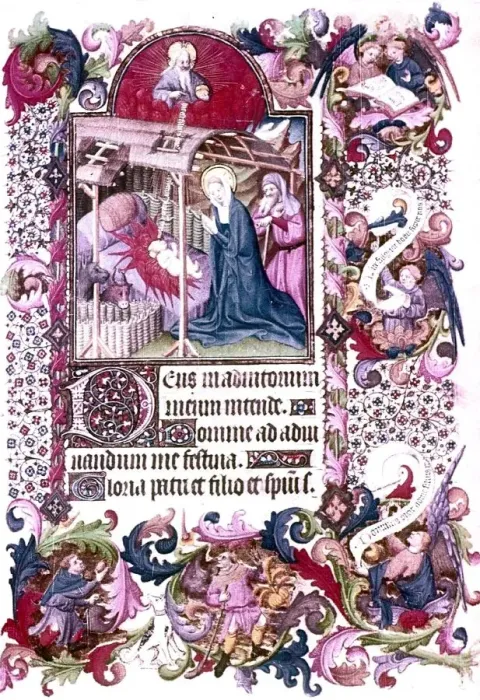 Deus in adiutorium
meum intende.
Domine ad adiu
uandum me festina.
Gloria patri et filio et spui s.